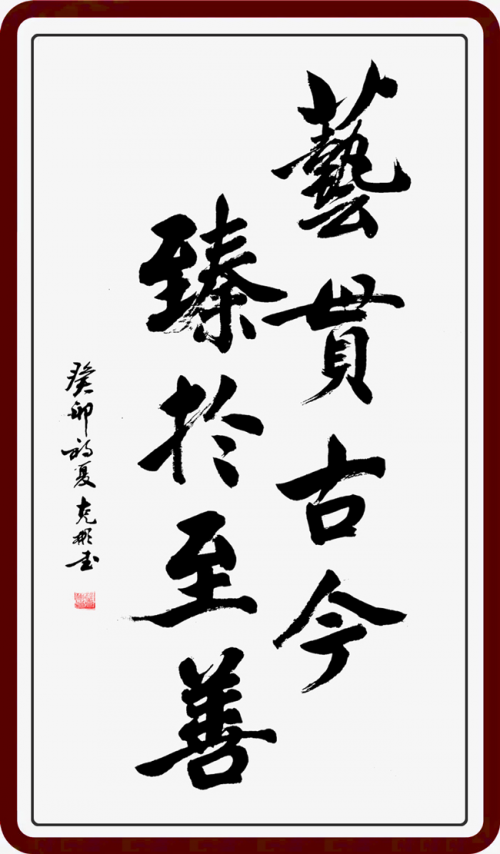 藝貫古今
臻於至善
癸卯初夏克彬書